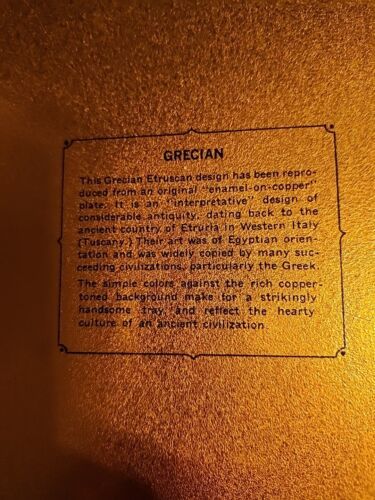 GRECIAN
This Grecian Etruscan design has been repro-
duced from an original "enamel-on-copper"
plate. It is an "interpretative" design of
considerable antiquity, dating back to the
ancient country of Etruria in Western Italy
(Tuscany.) Their art was of Egyptian orien-
tation and was widely copied by many suc-
ceeding civilizations, particularly the Greek.
The simple colors against the rich copper-
toned background make for a strikingly
handsome tray, and reflect the hearty
culture of an ancient civilization.